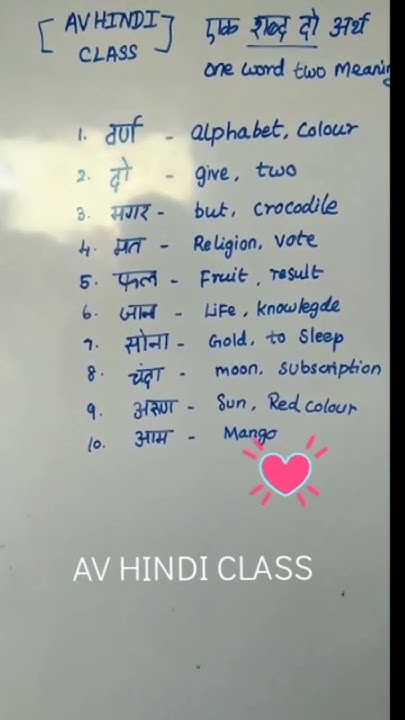 [AV HINDI CLASS]
एक शब्द दो अर्थ
one word two Meaning
1. वर्ण - alphabet, colour
2. दो - give, two
3. मगर - but, crocodile
4. मत - Religion, vote
5. फल - Fruit, result
6. जान - Life, knowlegde
7. सोना - Gold, to sleep
8. चंदा - moon, subscription
9. अरुण - Sun, Red colour
10. आम - Mango
AV HINDI CLASS